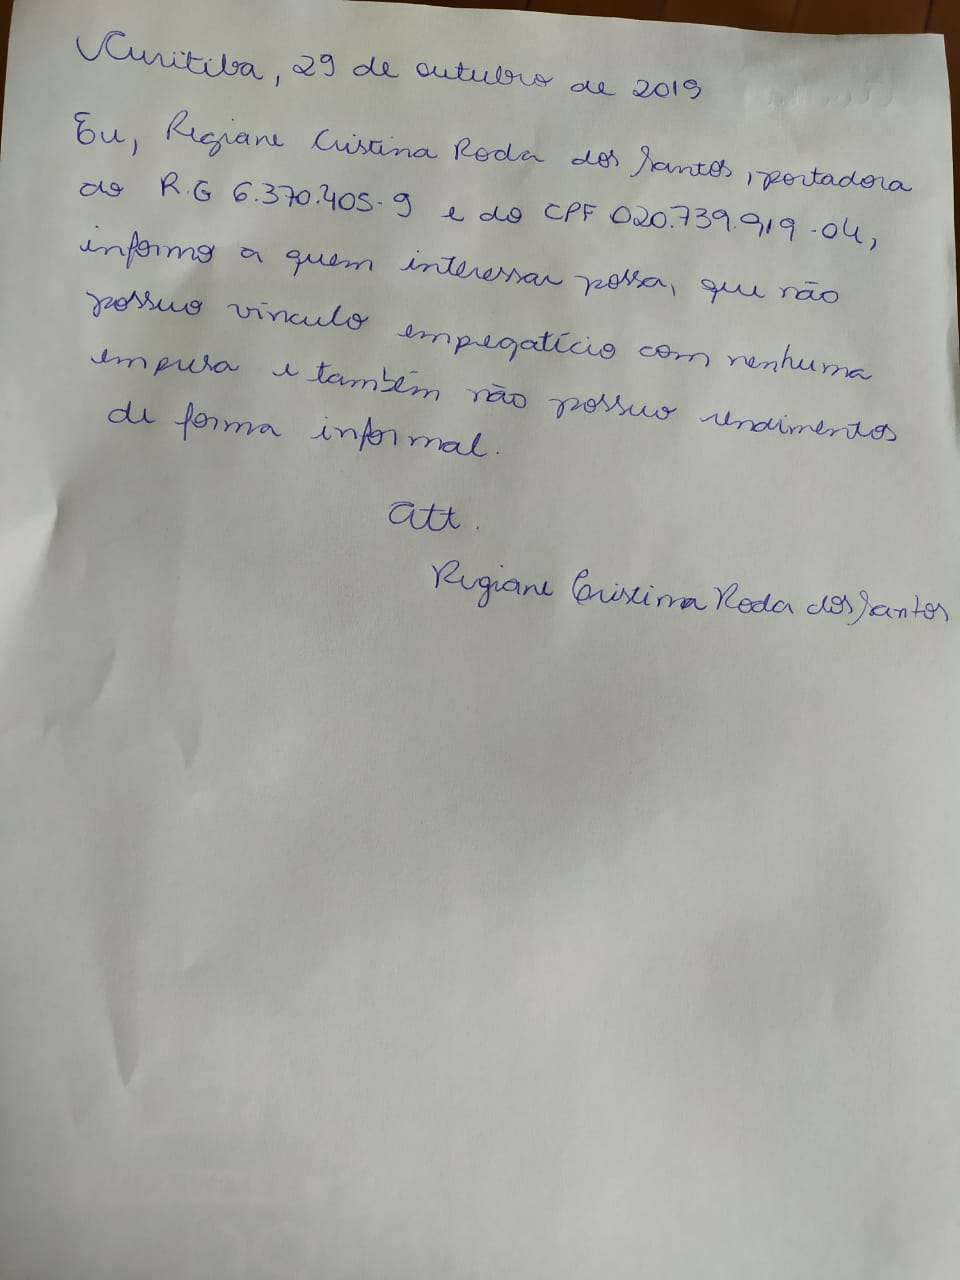 Curitiba, 29 de outubro de 2019
Eu, Regiane Cristina Roda dos Santos, portadora
do R.G 6.370.405-9 e do CPF 020.739.919-04,
informo a quem interessar possa, que não
possuo vínculo empregatício com nenhuma
empresa e também não possuo rendimentos
de forma informal.
Att.
Regiane Cristina Roda dos Santos